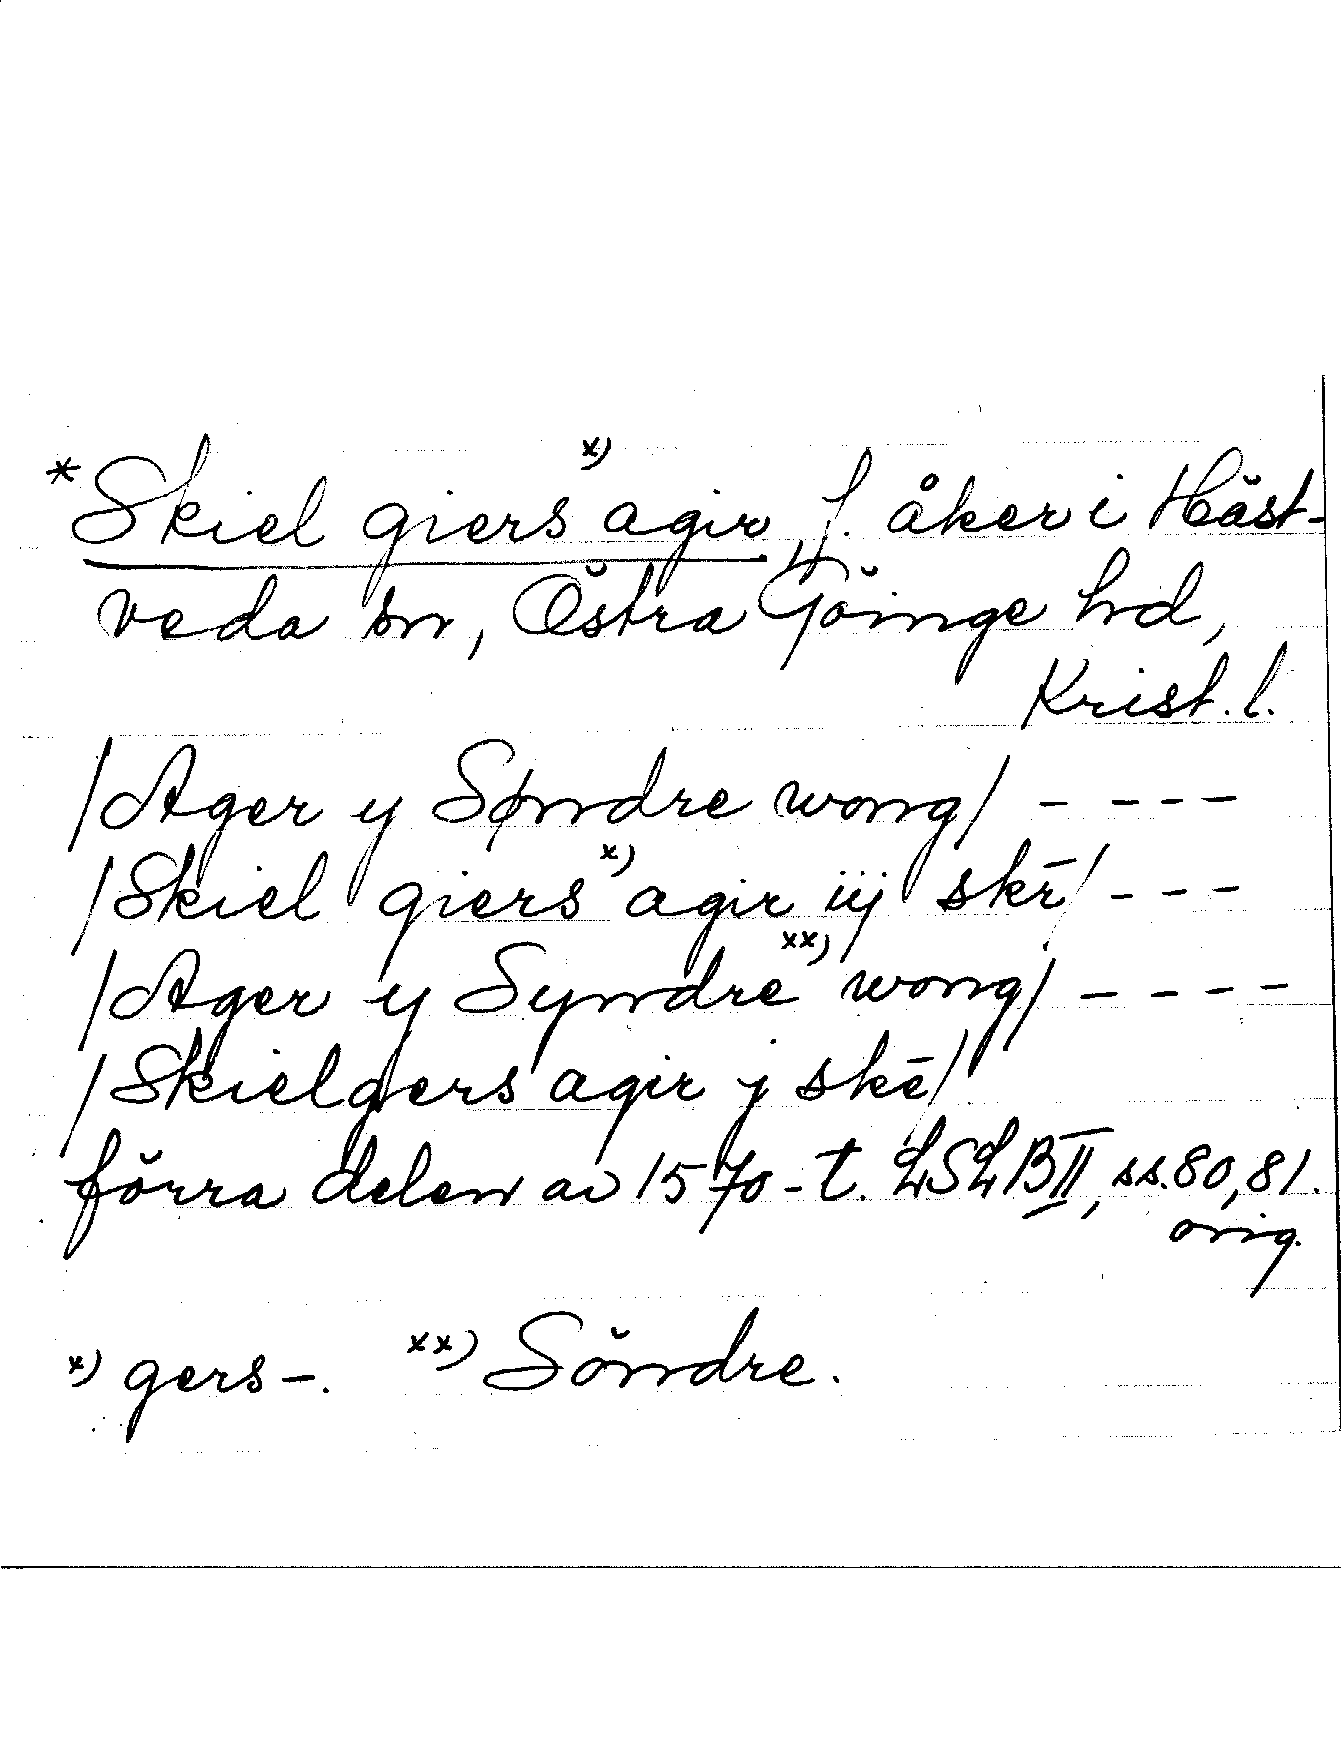 *Skiel giers x) agir, f. åker i Häst-
veda sn, Östra Göinge hd,
Krist. l.
/Ager y Søndre wong/ - - - -
/Skiel giers x) agir iij skr̄/ - - -
/Ager y Syndre xx) wong/ - - - -
/Skielgers agir j skē/
förra delen av 1570-t. LSLB II, ss. 80, 81.
orig.
x) gers-. xx) Söndre.